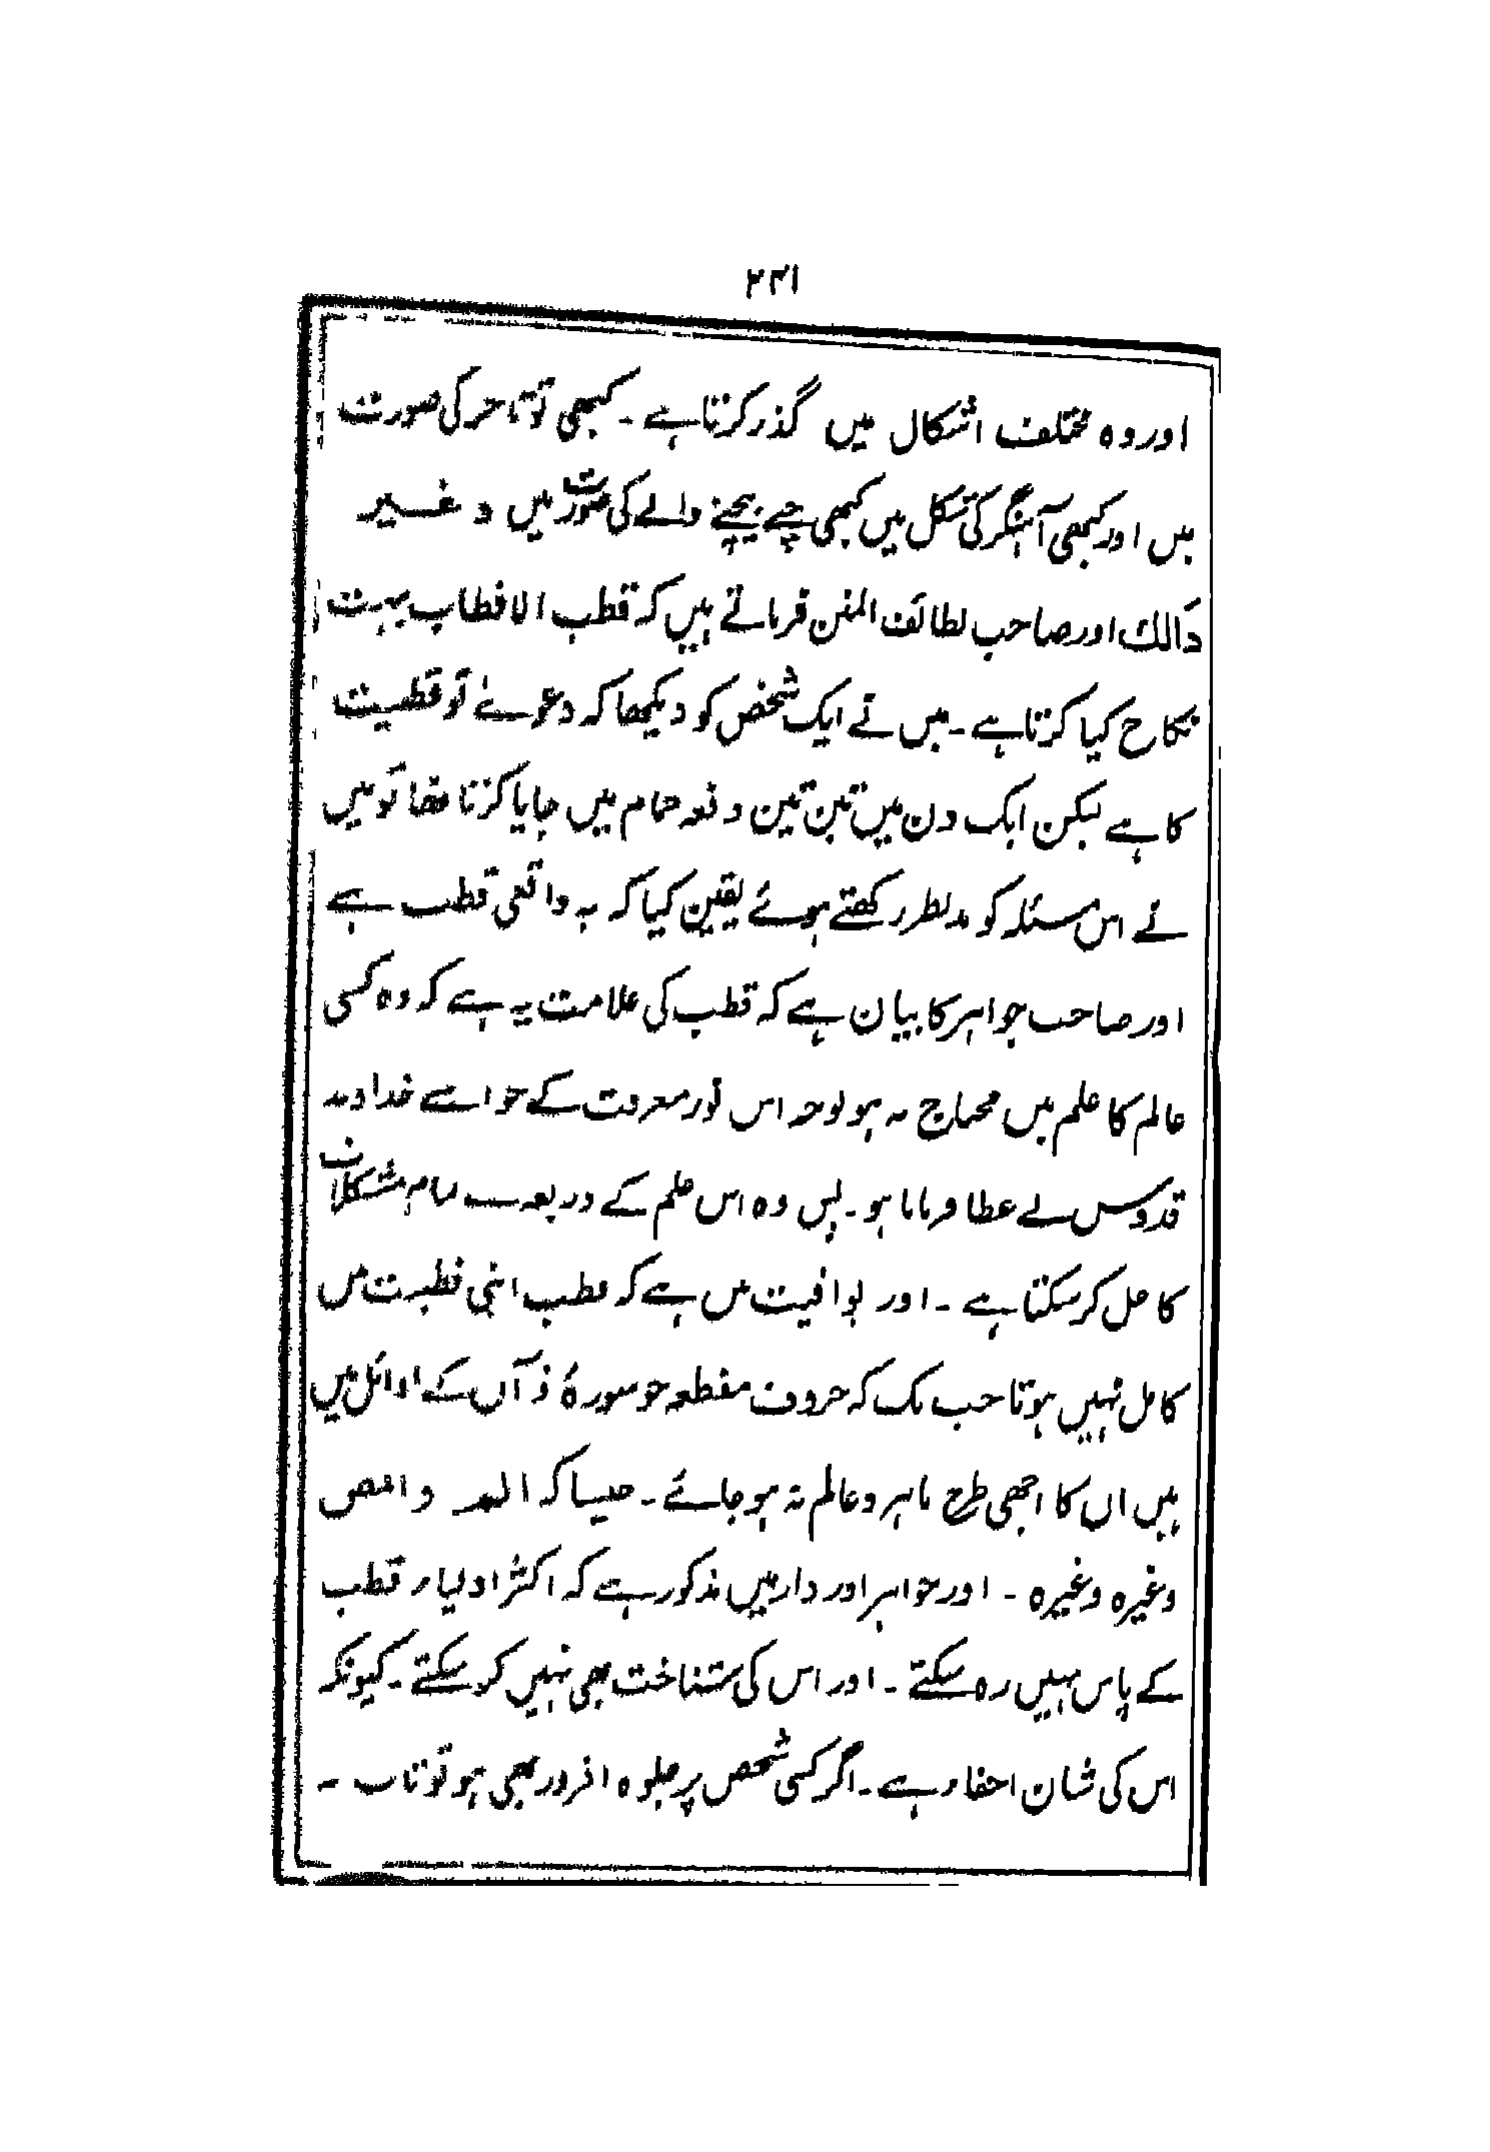 ۲۳۱
اور وہ مختلف اشکال میں گذر کرتا ہے ۔ کبھی تو تاجر کی صورت
میں اور کبھی آہنگر کی شکل میں کبھی چنے بیچنے والے کی صورت میں و غیر
ذالك اور صاحب لطائف المنن فرماتے ہیں کہ قطب الاقطاب بہت
نکاح کیا کرتا ہے ۔ میں نے ایک شخص کو دیکھا کہ دعوے تو قطبیت
کا ہے لیکن ایک دن میں تین تین دفعہ حمام میں جایا کرتا تھا تو میں
نے اس مسئلہ کو مدنظر رکھتے ہوئے یقین کیا کہ یہ واقعی قطب ہے
اور صاحب جواہر کا بیان ہے کہ قطب کی علامت یہ ہے کہ وہ کسی
عالم کا علم میں محتاج نہ ہو بوجہ اس نور معرفت کے جو اسے خداوند
قدوس نے عطا فرمایا ہو ۔ پس وہ اس علم کے ذریعہ سے تمام مشکلات
کا حل کر سکتا ہے ۔ اور یواقیت میں ہے کہ قطب اپنی قطبیت میں
کامل نہیں ہوتا جب تک کہ حروف مقطعہ جو سورۂ قرآن کے اوائل میں
ہیں ان کا اچھی طرح ماہر و عالم نہ ہو جائے ۔ جیسا کہ الم و المص
وغیرہ وغیرہ ۔ اور جواہر اور دار میں مذکور ہے کہ اکثر اولیاء قطب
کے پاس نہیں رہ سکتے ۔ اور اس کی شناخت بھی نہیں کر سکتے ۔ کیونکہ
اس کی شان اخفاء ہے ۔ اگر کسی شخص پر جلوہ افروز بھی ہو تو تاب ۔